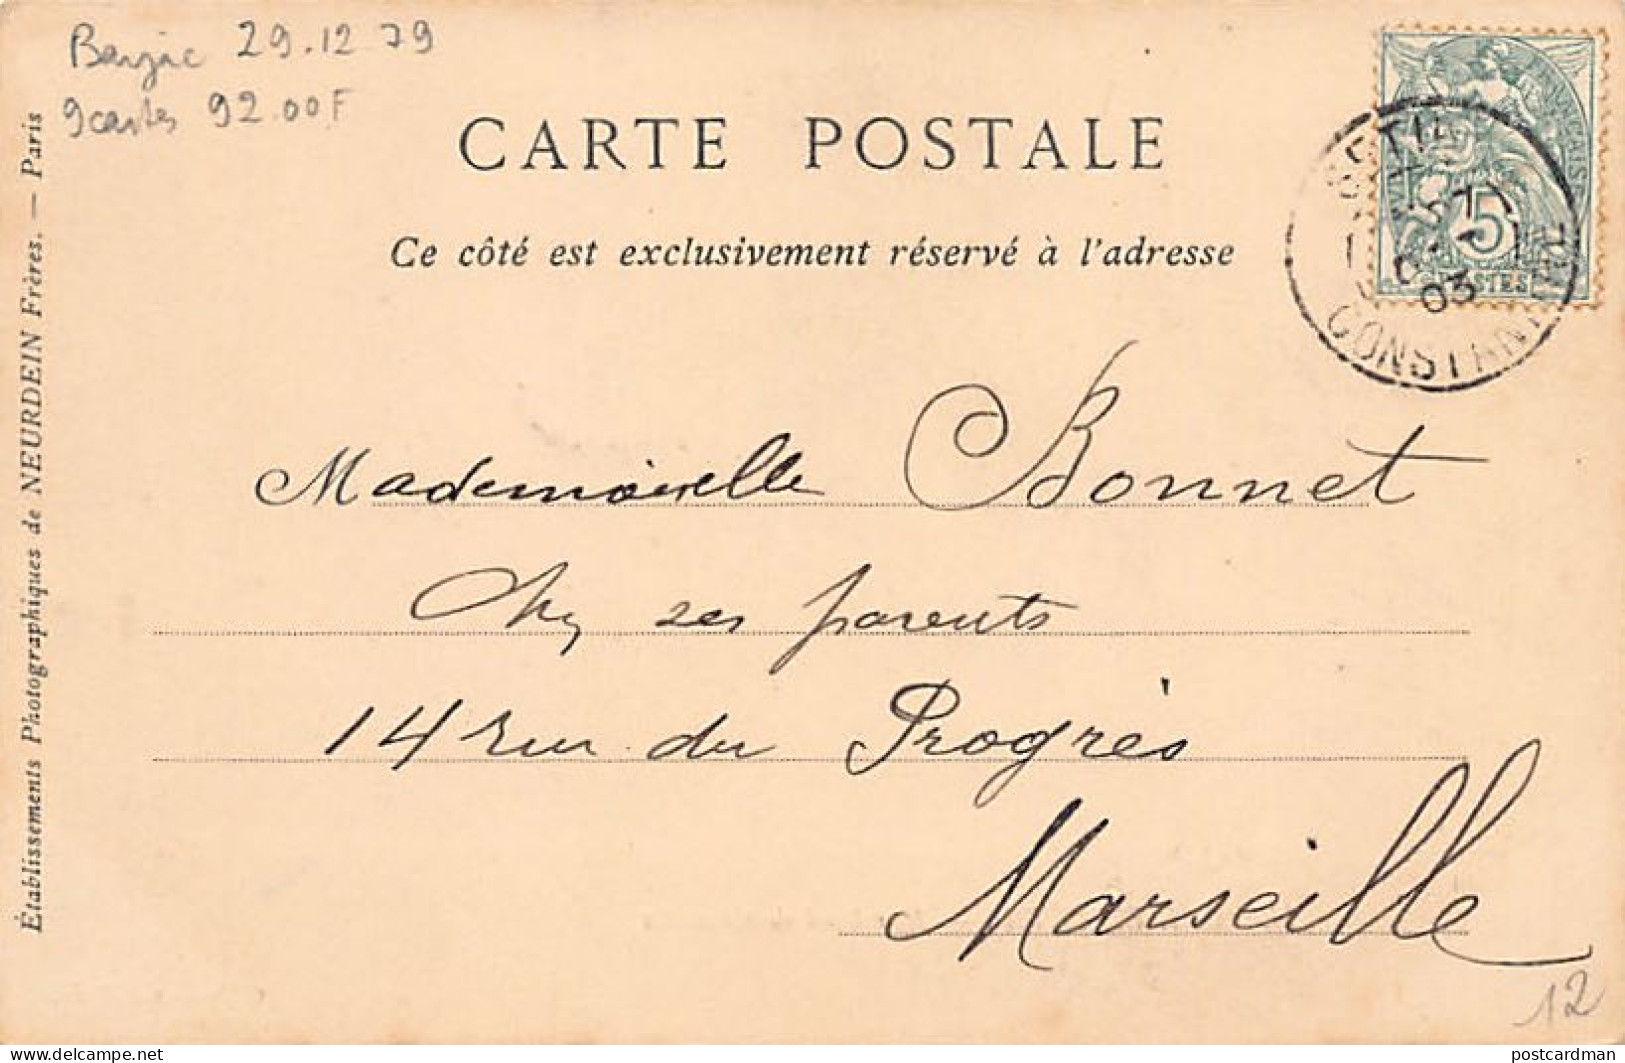 Barjac 29.12 79
9 cartes 92.00 F
CARTE POSTALE
Ce côté est exclusivement réservé à l'adresse
SETIF
27
03
CONSTANTINE
5
Établissements Photographiques de NEURDEIN Frères. — Paris
Mademoiselle Bonnet
Chez ses parents
14 rue du Progrès
Marseille
12
delcampe.net
postcardman